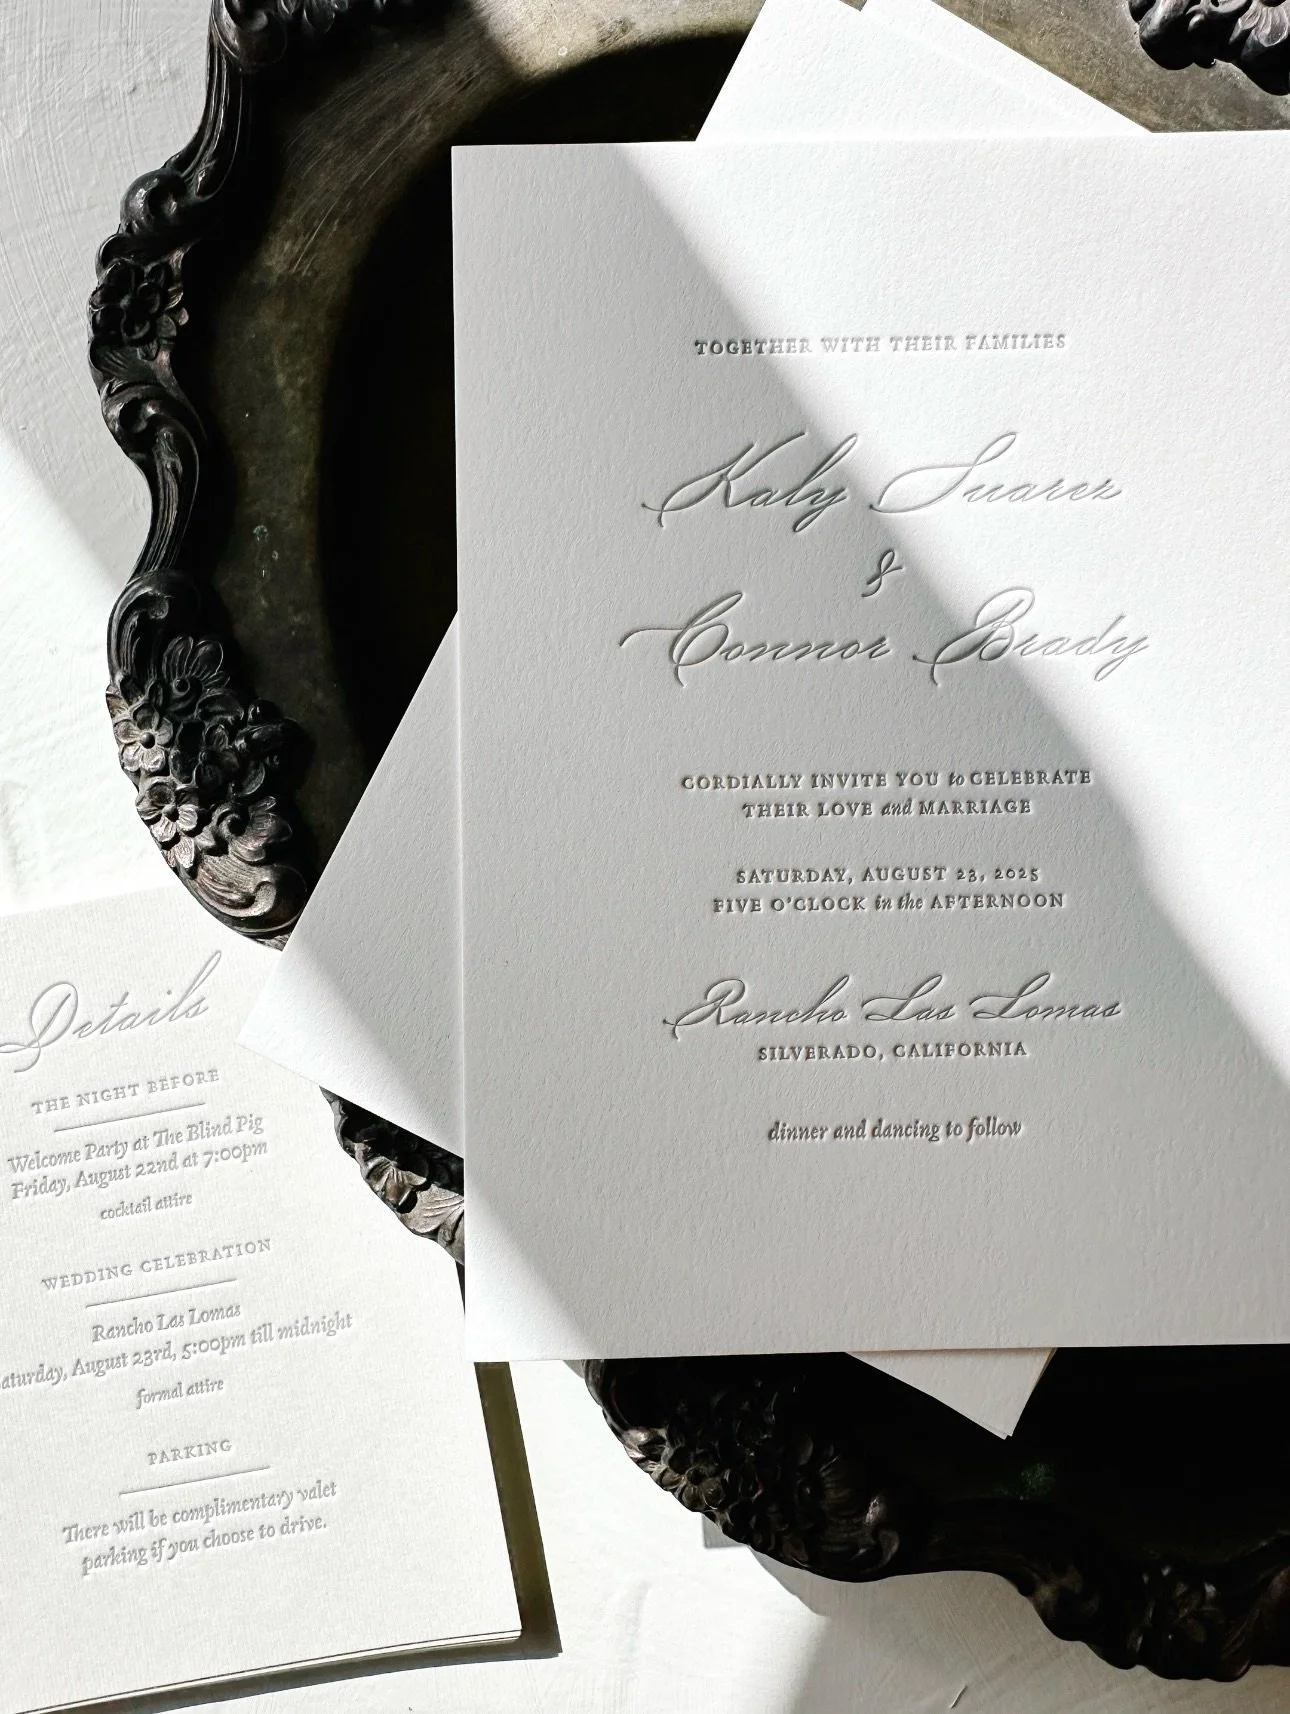 TOGETHER WITH THEIR FAMILIES
Kaly Suarez
&
Connor Brady
CORDIALLY INVITE YOU to CELEBRATE
THEIR LOVE and MARRIAGE
SATURDAY, AUGUST 23, 2025
FIVE O'CLOCK in the AFTERNOON
Rancho Las Lomas
SILVERADO, CALIFORNIA
dinner and dancing to follow
Details
THE NIGHT BEFORE
Welcome Party at The Blind Pig
Friday, August 22nd at 7:00pm
cocktail attire
WEDDING CELEBRATION
Rancho Las Lomas
aturday, August 23rd, 5:00pm till midnight
formal attire
PARKING
There will be complimentary valet
parking if you choose to drive.